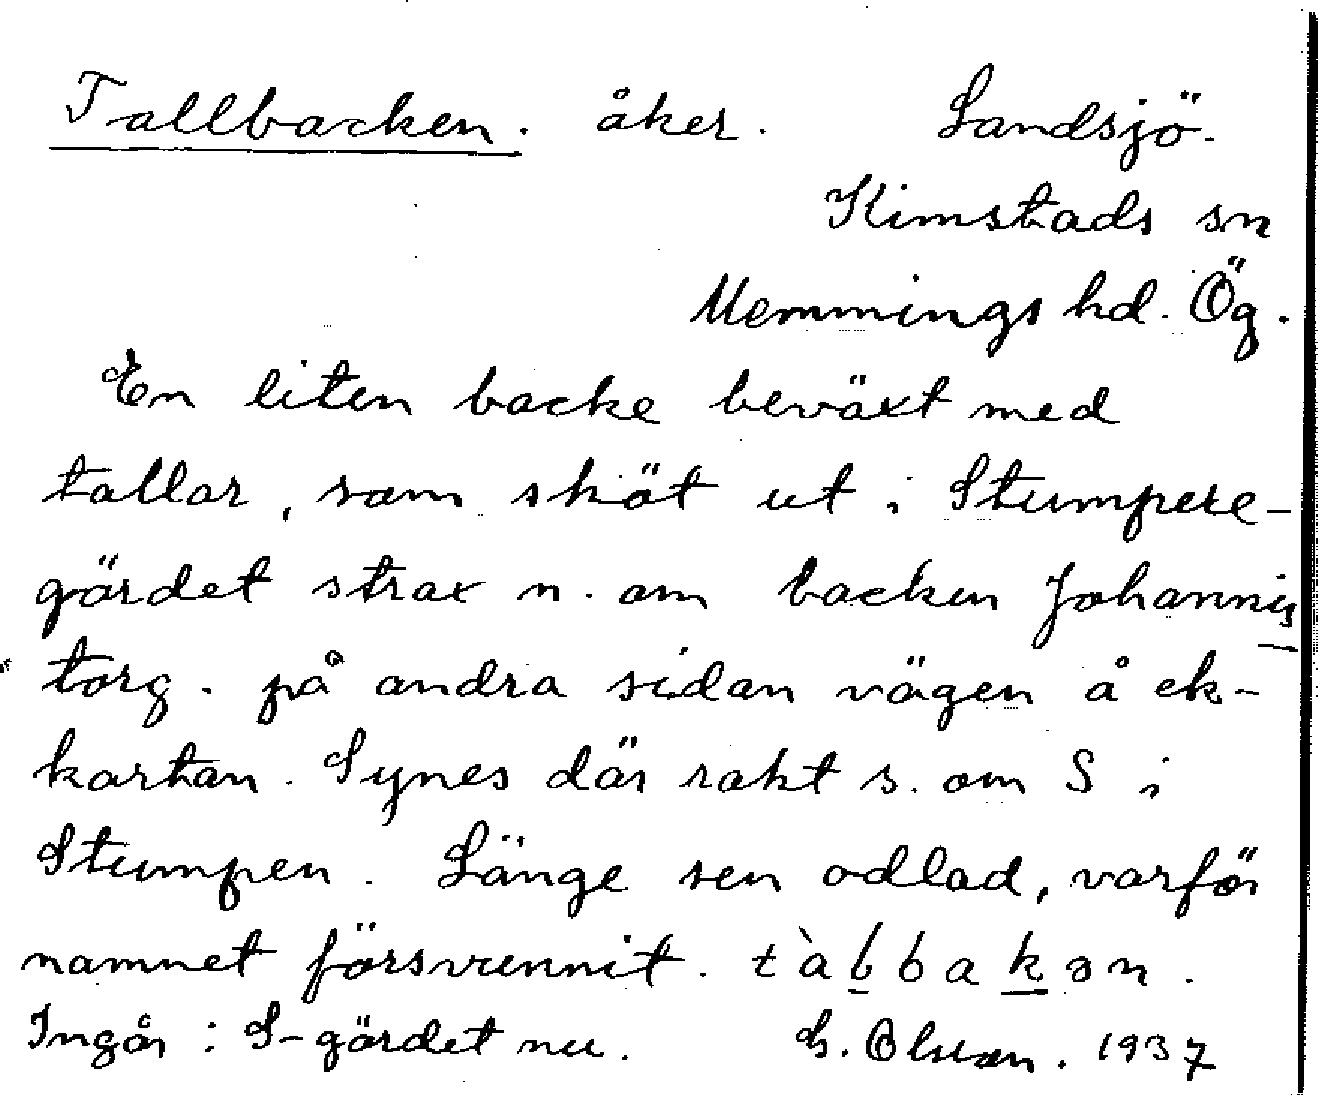 Tallbacken. åker. Landsjö.
Kimstads sn
Memmings hd. Ög.
En liten backe beväxt med
tallar, som sköt ut i Stumpere-
gärdet strax n. om backen Johannis
torg. på andra sidan vägen å ek-
kartan. Synes där rakt s. om S i
Stumpen. Länge sen odlad, varför
namnet försvunnit. tàbbakən.
Ingår i S-gärdet nu. G. Olsson. 1937